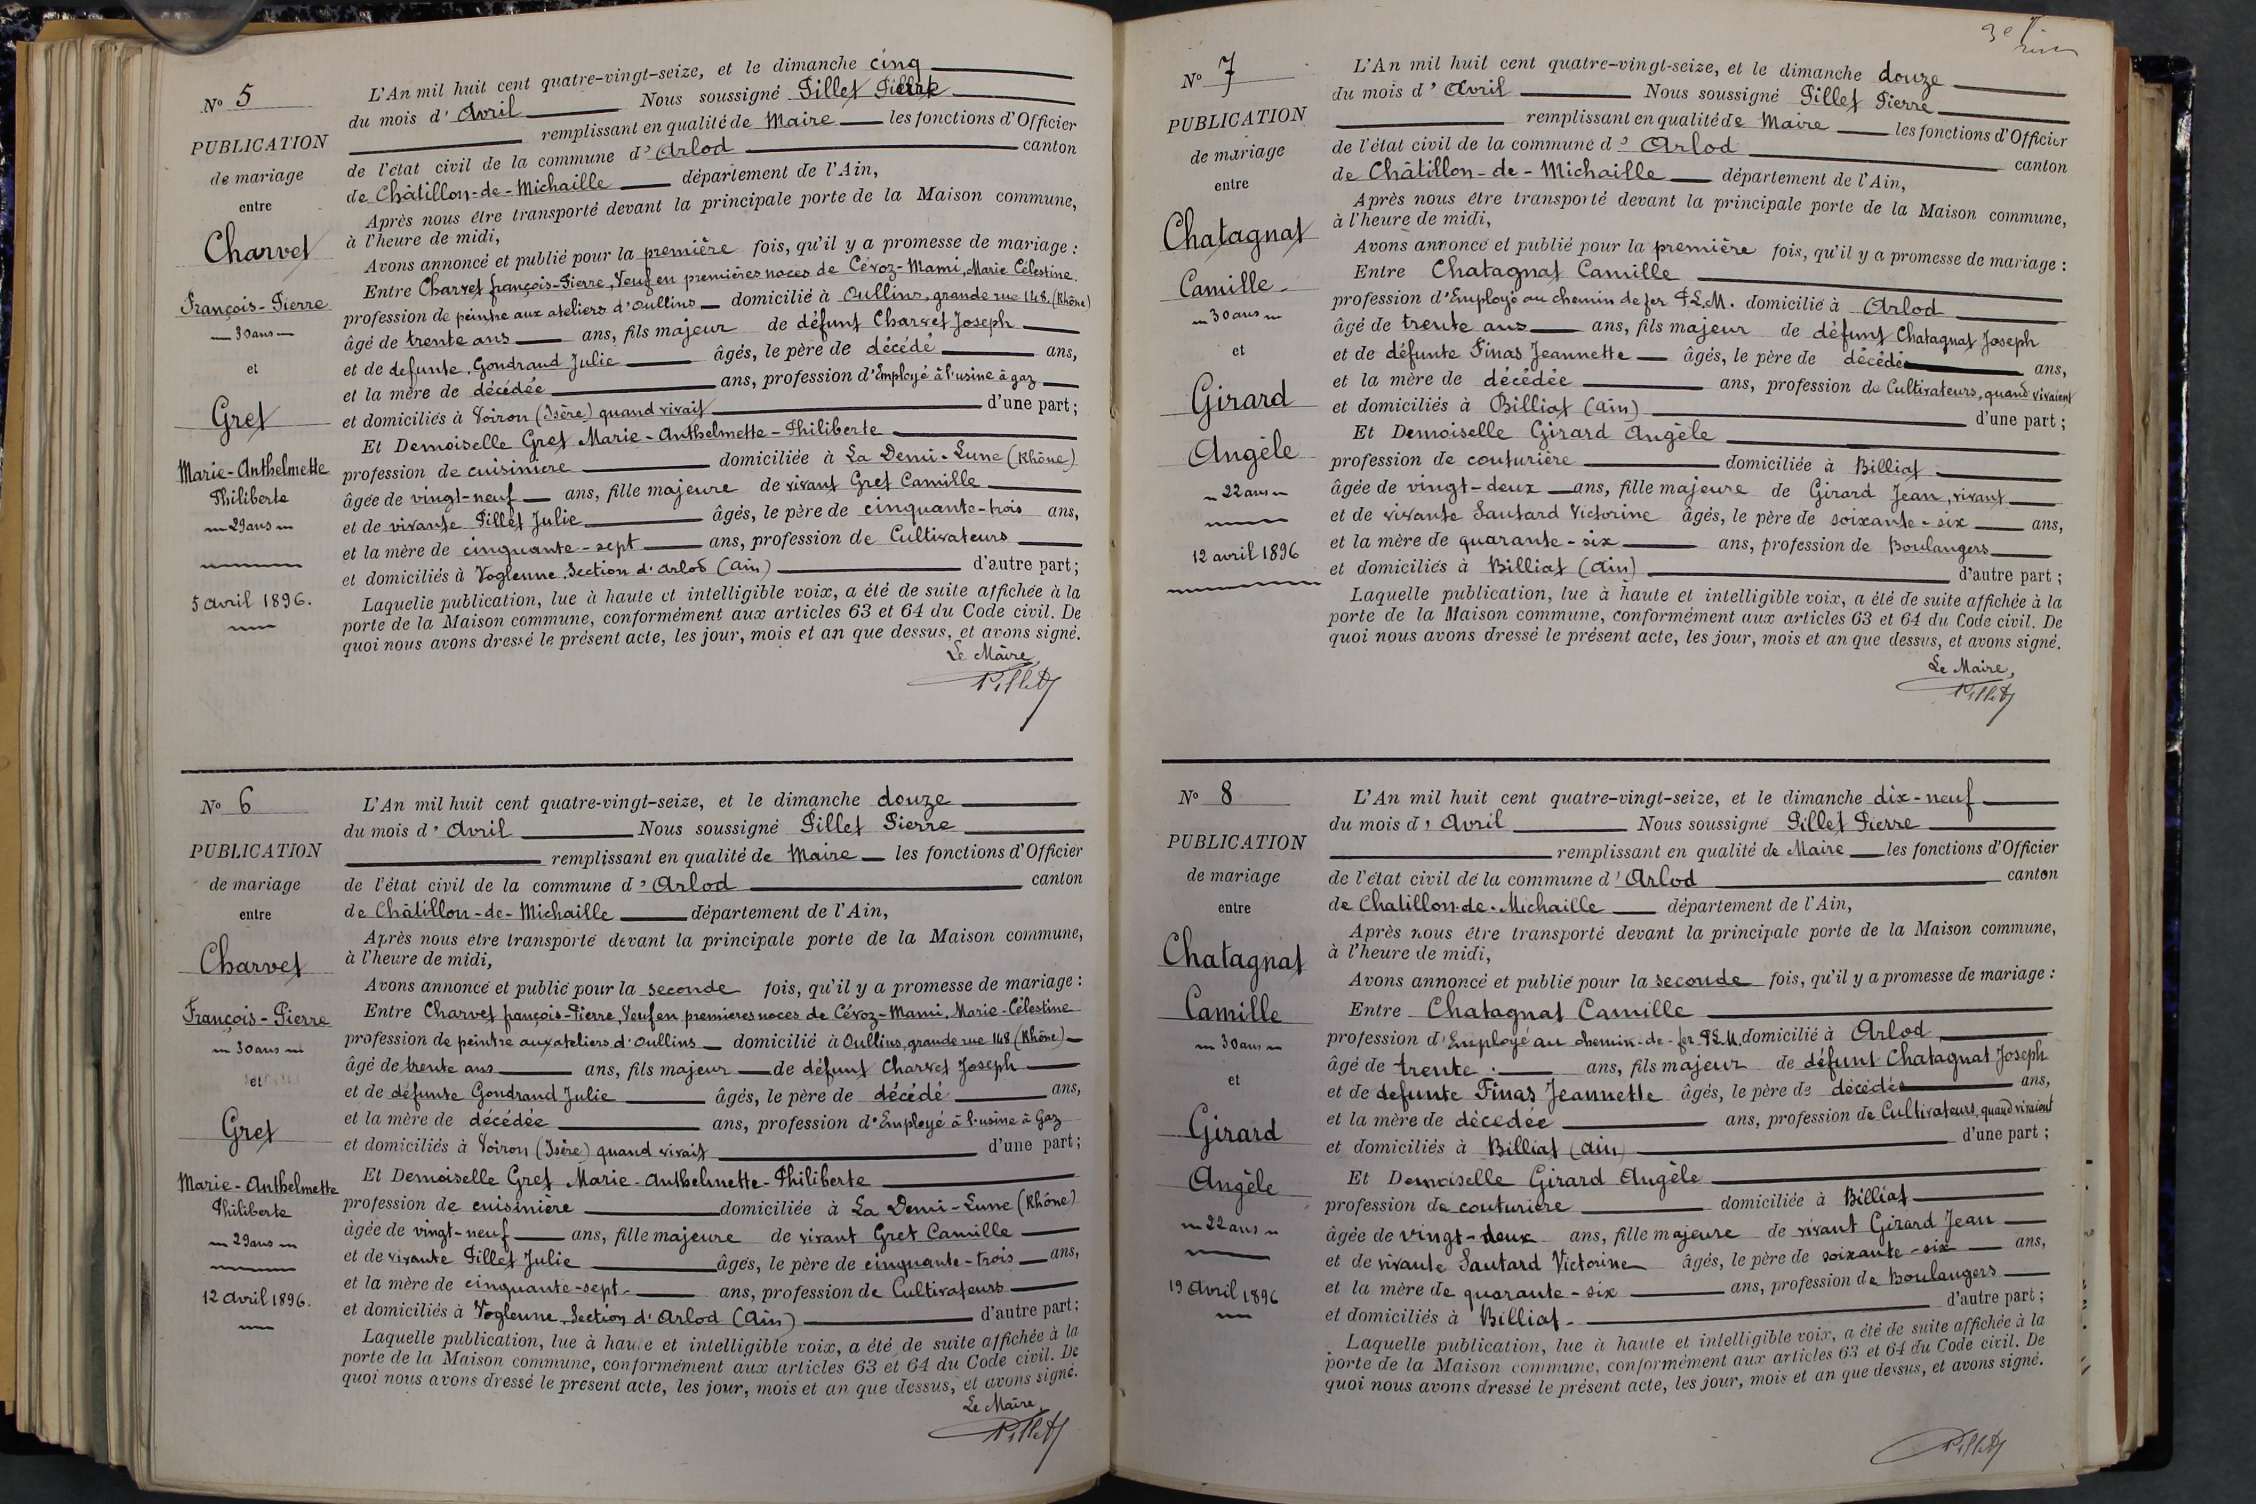 N° 5
PUBLICATION
de mariage
entre
Charvet
François-Pierre
30 ans
et
Gret
Marie-Anthelmette
Philiberte
29 ans
5 avril 1896.
L'An mil huit cent quatre-vingt-seize, et le dimanche cinq
du mois d'Avril Nous soussigné Pillet Pierre
remplissant en qualité de Maire les fonctions d'Officier
de l'état civil de la commune d'Arlod canton
de Châtillon-de-Michaille département de l'Ain,
Après nous être transporté devant la principale porte de la Maison commune,
à l'heure de midi,
Avons annoncé et publié pour la première fois, qu'il y a promesse de mariage :
Entre Charvet françois-Pierre, Veuf en premières noces de Cévoz-Mami, Marie Célestine
profession de peintre aux ateliers d'Oullins domicilié à Oullins, grande rue 148 (Rhône)
âgé de trente ans ans, fils majeur de défunt Charvet Joseph
et de defunte, Gondrand Julie âgés, le père de décédé ans,
et la mère de décédée ans, profession d'Employé à l'usine à gaz
et domiciliés à Voiron (Isère) quand vivait d'une part ;
Et Demoiselle Gret Marie-Anthelmette-Philiberte
profession de cuisiniere domiciliée à La Demi-Lune (Rhône)
âgée de vingt-neuf ans, fille majeure de vivant Gret Camille
et de vivante Pillet Julie âgés, le père de cinquante-trois ans,
et la mère de cinquante-sept ans, profession de Cultivateurs
et domiciliés à Voglenne, Section d'Arlod (Ain) d'autre part ;
Laquelle publication, lue à haute et intelligible voix, a été de suite affichée à la
porte de la Maison commune, conformément aux articles 63 et 64 du Code civil. De
quoi nous avons dressé le présent acte, les jour, mois et an que dessus, et avons signé.
Le Maire
Pillet
N° 6
PUBLICATION
de mariage
entre
Charvet
François-Pierre
30 ans
et
Gret
Marie-Anthelmette
Philiberte
29 ans
12 avril 1896.
L'An mil huit cent quatre-vingt-seize, et le dimanche douze
du mois d'Avril Nous soussigné Pillet Pierre
remplissant en qualité de Maire les fonctions d'Officier
de l'état civil de la commune d'Arlod canton
de Châtillon-de-Michaille département de l'Ain,
Après nous être transporté devant la principale porte de la Maison commune,
à l'heure de midi,
Avons annoncé et publié pour la seconde fois, qu'il y a promesse de mariage :
Entre Charvet françois-Pierre, Veuf en premieres noces de Cévoz-Mami, Marie-Célestine
profession de peintre aux ateliers d'Oullins domicilié à Oullins, grande rue 148 (Rhône)
âgé de trente ans ans, fils majeur de défunt Charvet Joseph
et de défunte Gondrand Julie âgés, le père de décédé ans,
et la mère de décédée ans, profession d'Employé à l'usine à Gaz
et domiciliés à Voiron (Isère) quand vivait d'une part ;
Et Demoiselle Gret Marie-Anthelmette-Philiberte
profession de cuisinière domiciliée à La Demi-Lune (Rhône)
âgée de vingt-neuf ans, fille majeure de vivant Gret Camille
et de vivante Pillet Julie âgés, le père de cinquante-trois ans,
et la mère de cinquante-sept ans, profession de Cultivateurs
et domiciliés à Voglenne, Section d'Arlod (Ain) d'autre part ;
Laquelle publication, lue à haute et intelligible voix, a été de suite affichée à la
porte de la Maison commune, conformément aux articles 63 et 64 du Code civil. De
quoi nous avons dressé le présent acte, les jour, mois et an que dessus, et avons signé.
Le Maire,
Pillet
N° 7
PUBLICATION
de mariage
entre
Chatagnat
Camille
30 ans
et
Girard
Angèle
22 ans
12 avril 1896
L'An mil huit cent quatre-vingt-seize, et le dimanche douze
du mois d'Avril Nous soussigné Pillet Pierre
remplissant en qualité de Maire les fonctions d'Officier
de l'état civil de la commune d'Arlod canton
de Châtillon-de-Michaille département de l'Ain,
Après nous être transporté devant la principale porte de la Maison commune,
à l'heure de midi,
Avons annoncé et publié pour la première fois, qu'il y a promesse de mariage :
Entre Chatagnat Camille
profession d'Employé au chemin de fer P.L.M. domicilié à Arlod
âgé de trente ans ans, fils majeur de défunt Chatagnat Joseph
et de défunte Finas Jeannette âgés, le père de décédé ans,
et la mère de décédée ans, profession de Cultivateurs, quand vivaient
et domiciliés à Billiat (Ain) d'une part ;
Et Demoiselle Girard Angèle
profession de couturière domiciliée à Billiat
âgée de vingt-deux ans, fille majeure de Girard Jean, vivant
et de vivante Sautard Victorine âgés, le père de soixante-six ans,
et la mère de quarante-six ans, profession de Boulangers
et domiciliés à Billiat (Ain) d'autre part ;
Laquelle publication, lue à haute et intelligible voix, a été de suite affichée à la
porte de la Maison commune, conformément aux articles 63 et 64 du Code civil. De
quoi nous avons dressé le présent acte, les jour, mois et an que dessus, et avons signé.
Le Maire,
Pillet
N° 8
PUBLICATION
de mariage
entre
Chatagnat
Camille
30 ans
et
Girard
Angèle
22 ans
19 Avril 1896
L'An mil huit cent quatre-vingt-seize, et le dimanche dix-neuf
du mois d'Avril Nous soussigné Pillet Pierre
remplissant en qualité de Maire les fonctions d'Officier
de l'état civil de la commune d'Arlod canton
de Chatillon-de-Michaille département de l'Ain,
Après nous être transporté devant la principale porte de la Maison commune,
à l'heure de midi,
Avons annoncé et publié pour la seconde fois, qu'il y a promesse de mariage :
Entre Chatagnat Camille
profession d'Employé au chemin-de-fer P.L.M. domicilié à Arlod
âgé de trente ans, fils majeur de défunt Chatagnat Joseph
et de defunte Finas Jeannette âgés, le père de décédé ans,
et la mère de décedée ans, profession de Cultivateurs, quand vivaient
et domiciliés à Billiat (Ain) d'une part ;
Et Demoiselle Girard Angèle
profession de couturière domiciliée à Billiat
âgée de vingt-deux ans, fille majeure de vivant Girard Jean
et de vivante Sautard Victorine âgés, le père de soixante-six ans,
et la mère de quarante-six ans, profession de Boulangers
et domiciliés à Billiat d'autre part ;
Laquelle publication, lue à haute et intelligible voix, a été de suite affichée à la
porte de la Maison commune, conformément aux articles 63 et 64 du Code civil. De
quoi nous avons dressé le présent acte, les jour, mois et an que dessus, et avons signé.
Pillet